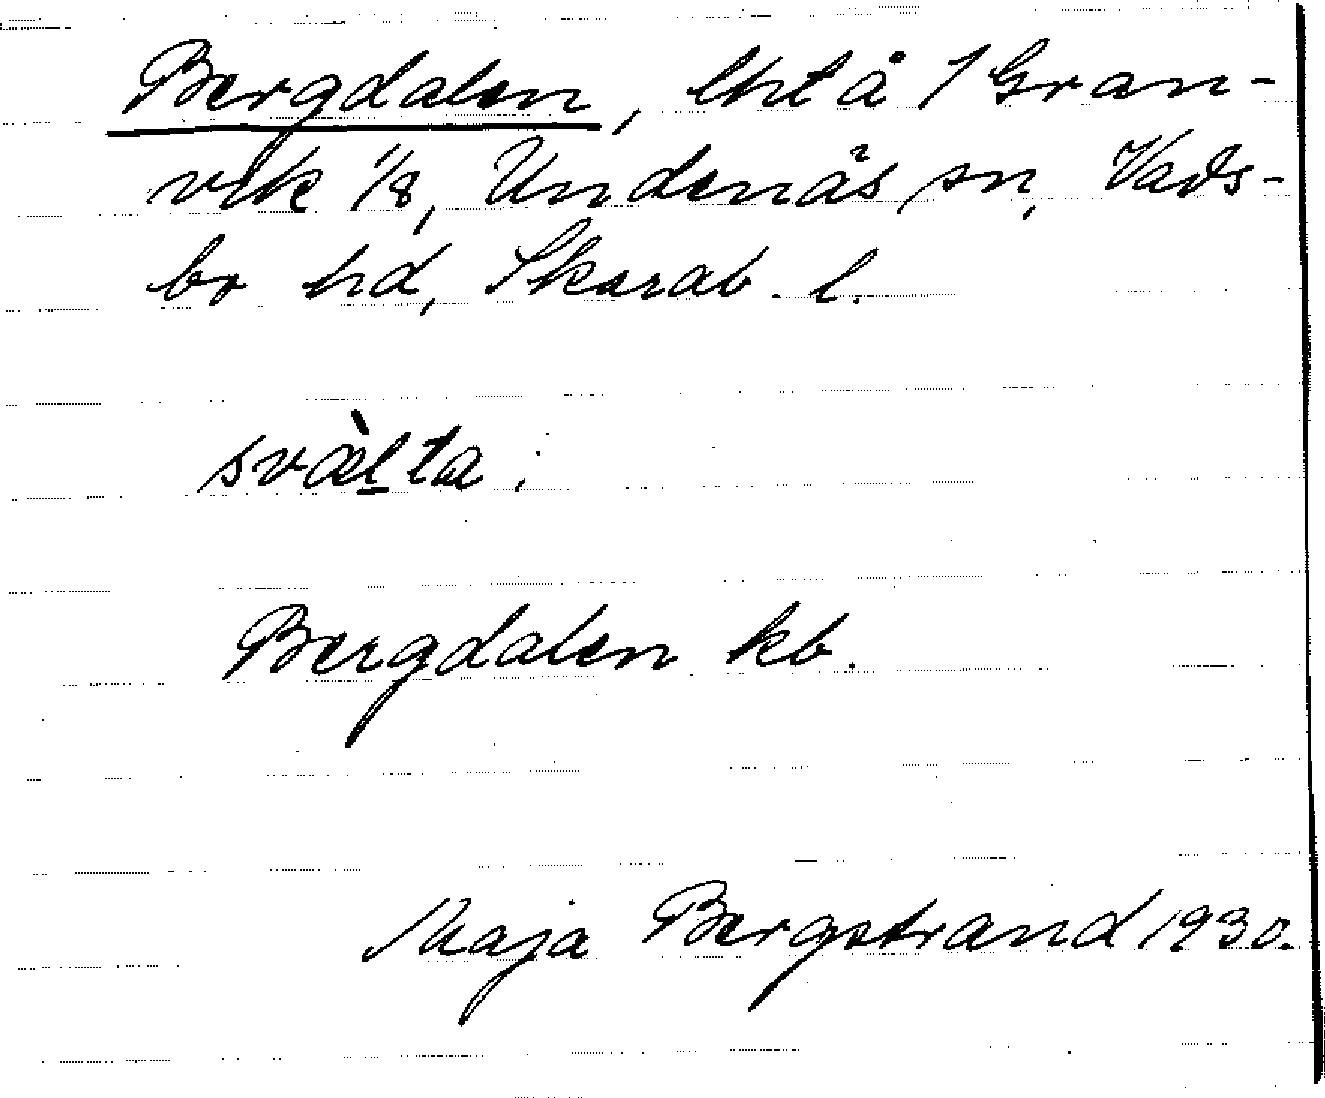 Bergdalen, lht å 1 Gran-
vik 1/8, Undenäs sn, Vads-
bo hd, Skarab. l.
svæ̀l̠ta.
Bergdalen kb.
Maja Bergstrand 1930.